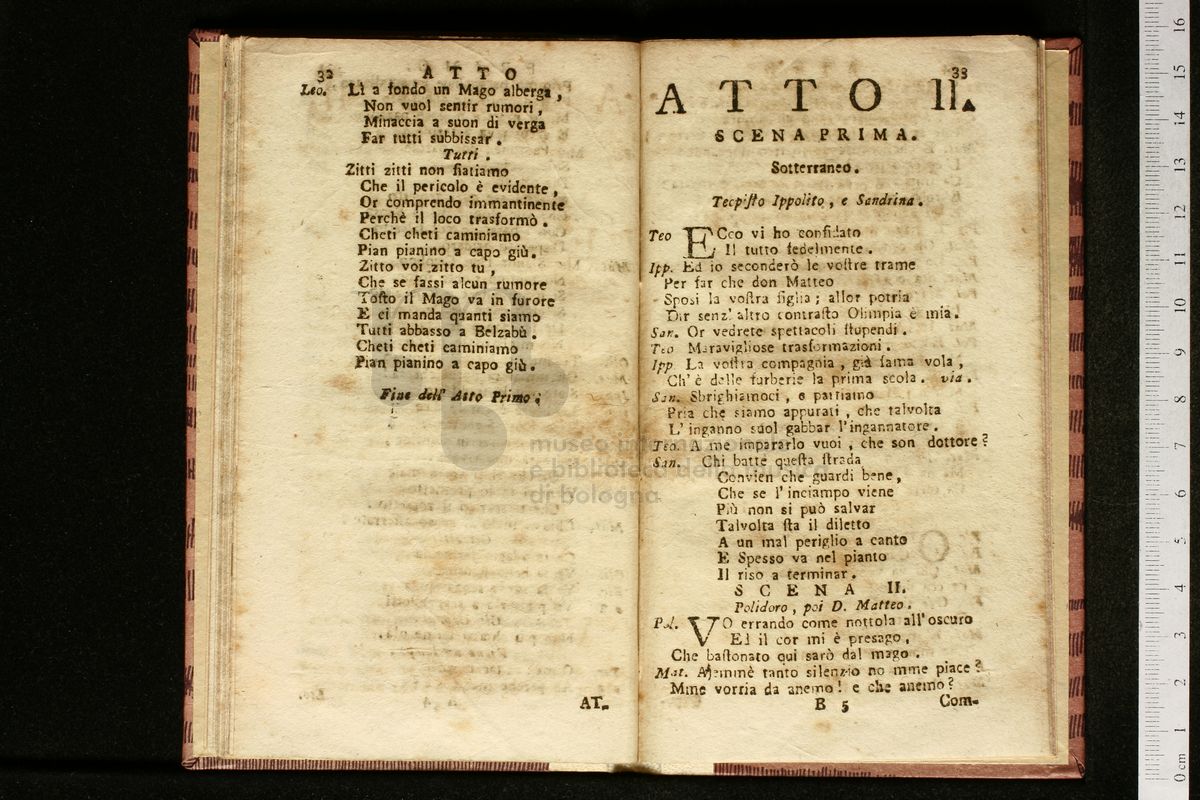 32 ATTO
Leo. Lì a fondo un Mago alberga,
Non vuol sentir rumori,
Minaccia a suon di verga
Far tutti subbissar.
Tutti.
Zitti zitti non fiatiamo
Che il pericolo è evidente,
Or comprendo immantinente
Perchè il loco trasformò.
Cheti cheti caminiamo
Pian pianino a capo giù.
Zitto voi zitto tu,
Che se fassi alcun rumore
Toſto il Mago va in furore
E ci manda quanti siamo
Tutti abbasso a Belzabù.
Cheti cheti caminiamo
Pian pianino a capo giù.
Fine dell' Atto Primo.
AT-
33
ATTO II.
SCENA PRIMA.
Sotterraneo.
Teopiſto Ippolito, e Sandrina.
Teo ECco vi ho confidato
Il tutto fedelmente.
Ipp. Ed io seconderò le voſtre trame
Per far che don Matteo
Sposi la voſtra figlia; allor potria
Dir senz' altro contraſto Olimpia è mia.
San. Or vedrete spettacoli ſtupendi.
Teo Maravigliose trasformazioni.
Ipp. La voſtra compagnia, già fama vola,
Ch' è delle furberie la prima scola. via.
San. Sbrighiamoci, e partiamo
Pria che siamo appurati, che talvolta
L' inganno suol gabbar l'ingannatore.
Teo. A me impararlo vuoi, che son dottore?
San. Chi batte queſta ſtrada
Convien che guardi bene,
Che se l' inciampo viene
Più non si può salvar
Talvolta ſta il diletto
A un mal periglio a canto
E Spesso va nel pianto
Il riso a terminar.
SCENA II.
Polidoro, poi D. Matteo.
Pol. VO errando come nottola all'oscuro
Ed il cor mi è presago,
Che baſtonato qui sarò dal mago.
Mat. Ajemmè tanto silenzio no mme piace?
Mme vorria da anemo! e che anemo?
B 5 Com-
museo internazionale
e biblioteca della musica
di bologna